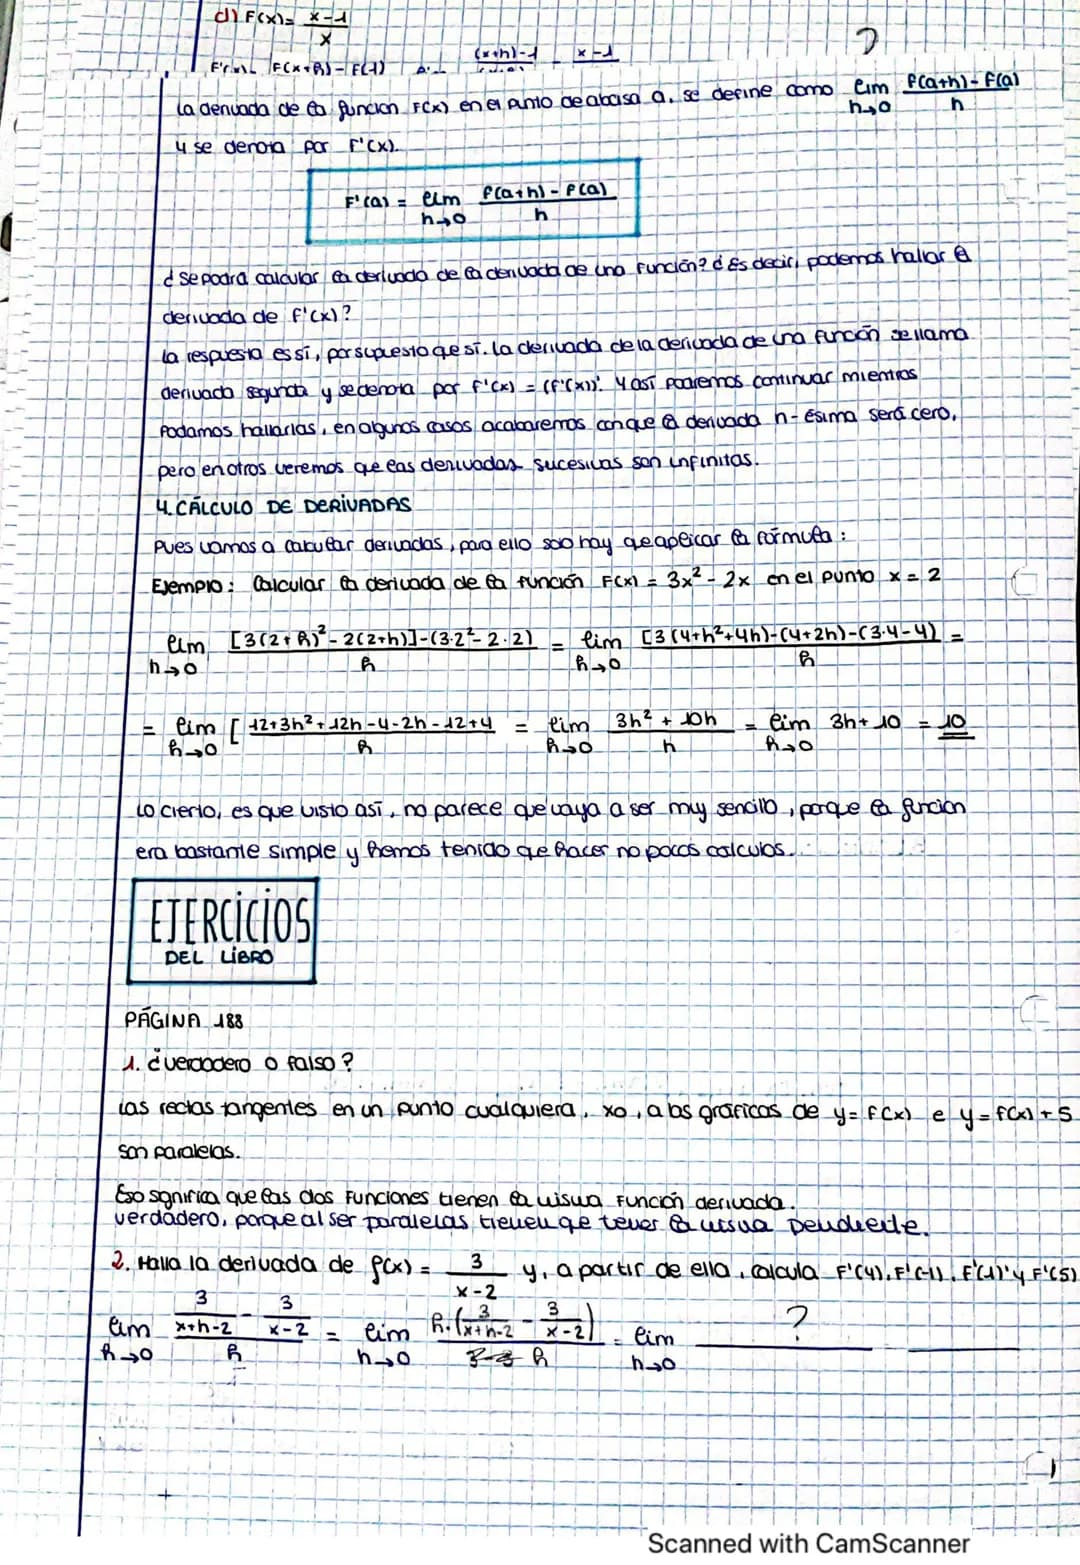 d) F(x)= x-1 / x
F(x+h)-F(1) (x+h)-1 x-1 ?
La derivada de la función F(x) en el punto de abcisa a, se define como lim h→0 f(a+h)-f(a) / h
y se denota por F'(x).
F'(a) = lim h→0 f(a+h)-f(a) / h
¿Se podrá calcular la derivada de la derivada de una función? ¿Es decir, podemos hallar la
derivada de f'(x)?
La respuesta es sí, por supuesto que sí. La derivada de la derivada de una función se llama
derivada segunda y se denota por f'(x) = (f'(x))'. Y así podremos continuar mientras
podamos hallarlas, en algunos casos acabaremos con que la derivada n-ésima será cero,
pero en otros veremos que las derivadas sucesivas son infinitas.
4. CÁLCULO DE DERIVADAS
Pues vamos a calcular derivadas, para ello solo hay que aplicar la fórmula:
Ejemplo: Calcular la derivada de la función F(x) = 3x² - 2x en el punto x = 2
lim h→0 [3(2+h)²-2(2+h)]-(3·2²-2·2) / h = lim h→0 [3(4+h²+4h)-(4+2h)-(3·4-4) / h =
= lim h→0 [ 12+3h²+12h-4-2h-12+4 / h = lim h→0 3h² + 10h / h = lim h→0 3h+10 = 10
Lo cierto, es que visto así, no parece que vaya a ser muy sencillo, porque la función
era bastante simple y hemos tenido que hacer no pocos calculos.
EJERCICIOS
DEL LIBRO
PÁGINA 188
1. ¿Verdadero o falso?
Las rectas tangentes en un punto cualquiera, xo, a las gráficas de y= f(x) e y=f(x)+5
son paralelas.
Eso significa que las dos funciones tienen la misma función derivada.
verdadero, porque al ser paralelas tienen que tener la misma pendiente.
2. Halla la derivada de f(x) = 3 / x-2 y, a partir de ella, calcula F'(4), F'(-1), F'(1) y F'(5)
lim h→0 3 / x+h-2 - 3 / x-2 / h = lim h→0 h·(3 / x+h-2 - 3 / x-2) / h = lim h→0 ?
Scanned with CamScanner